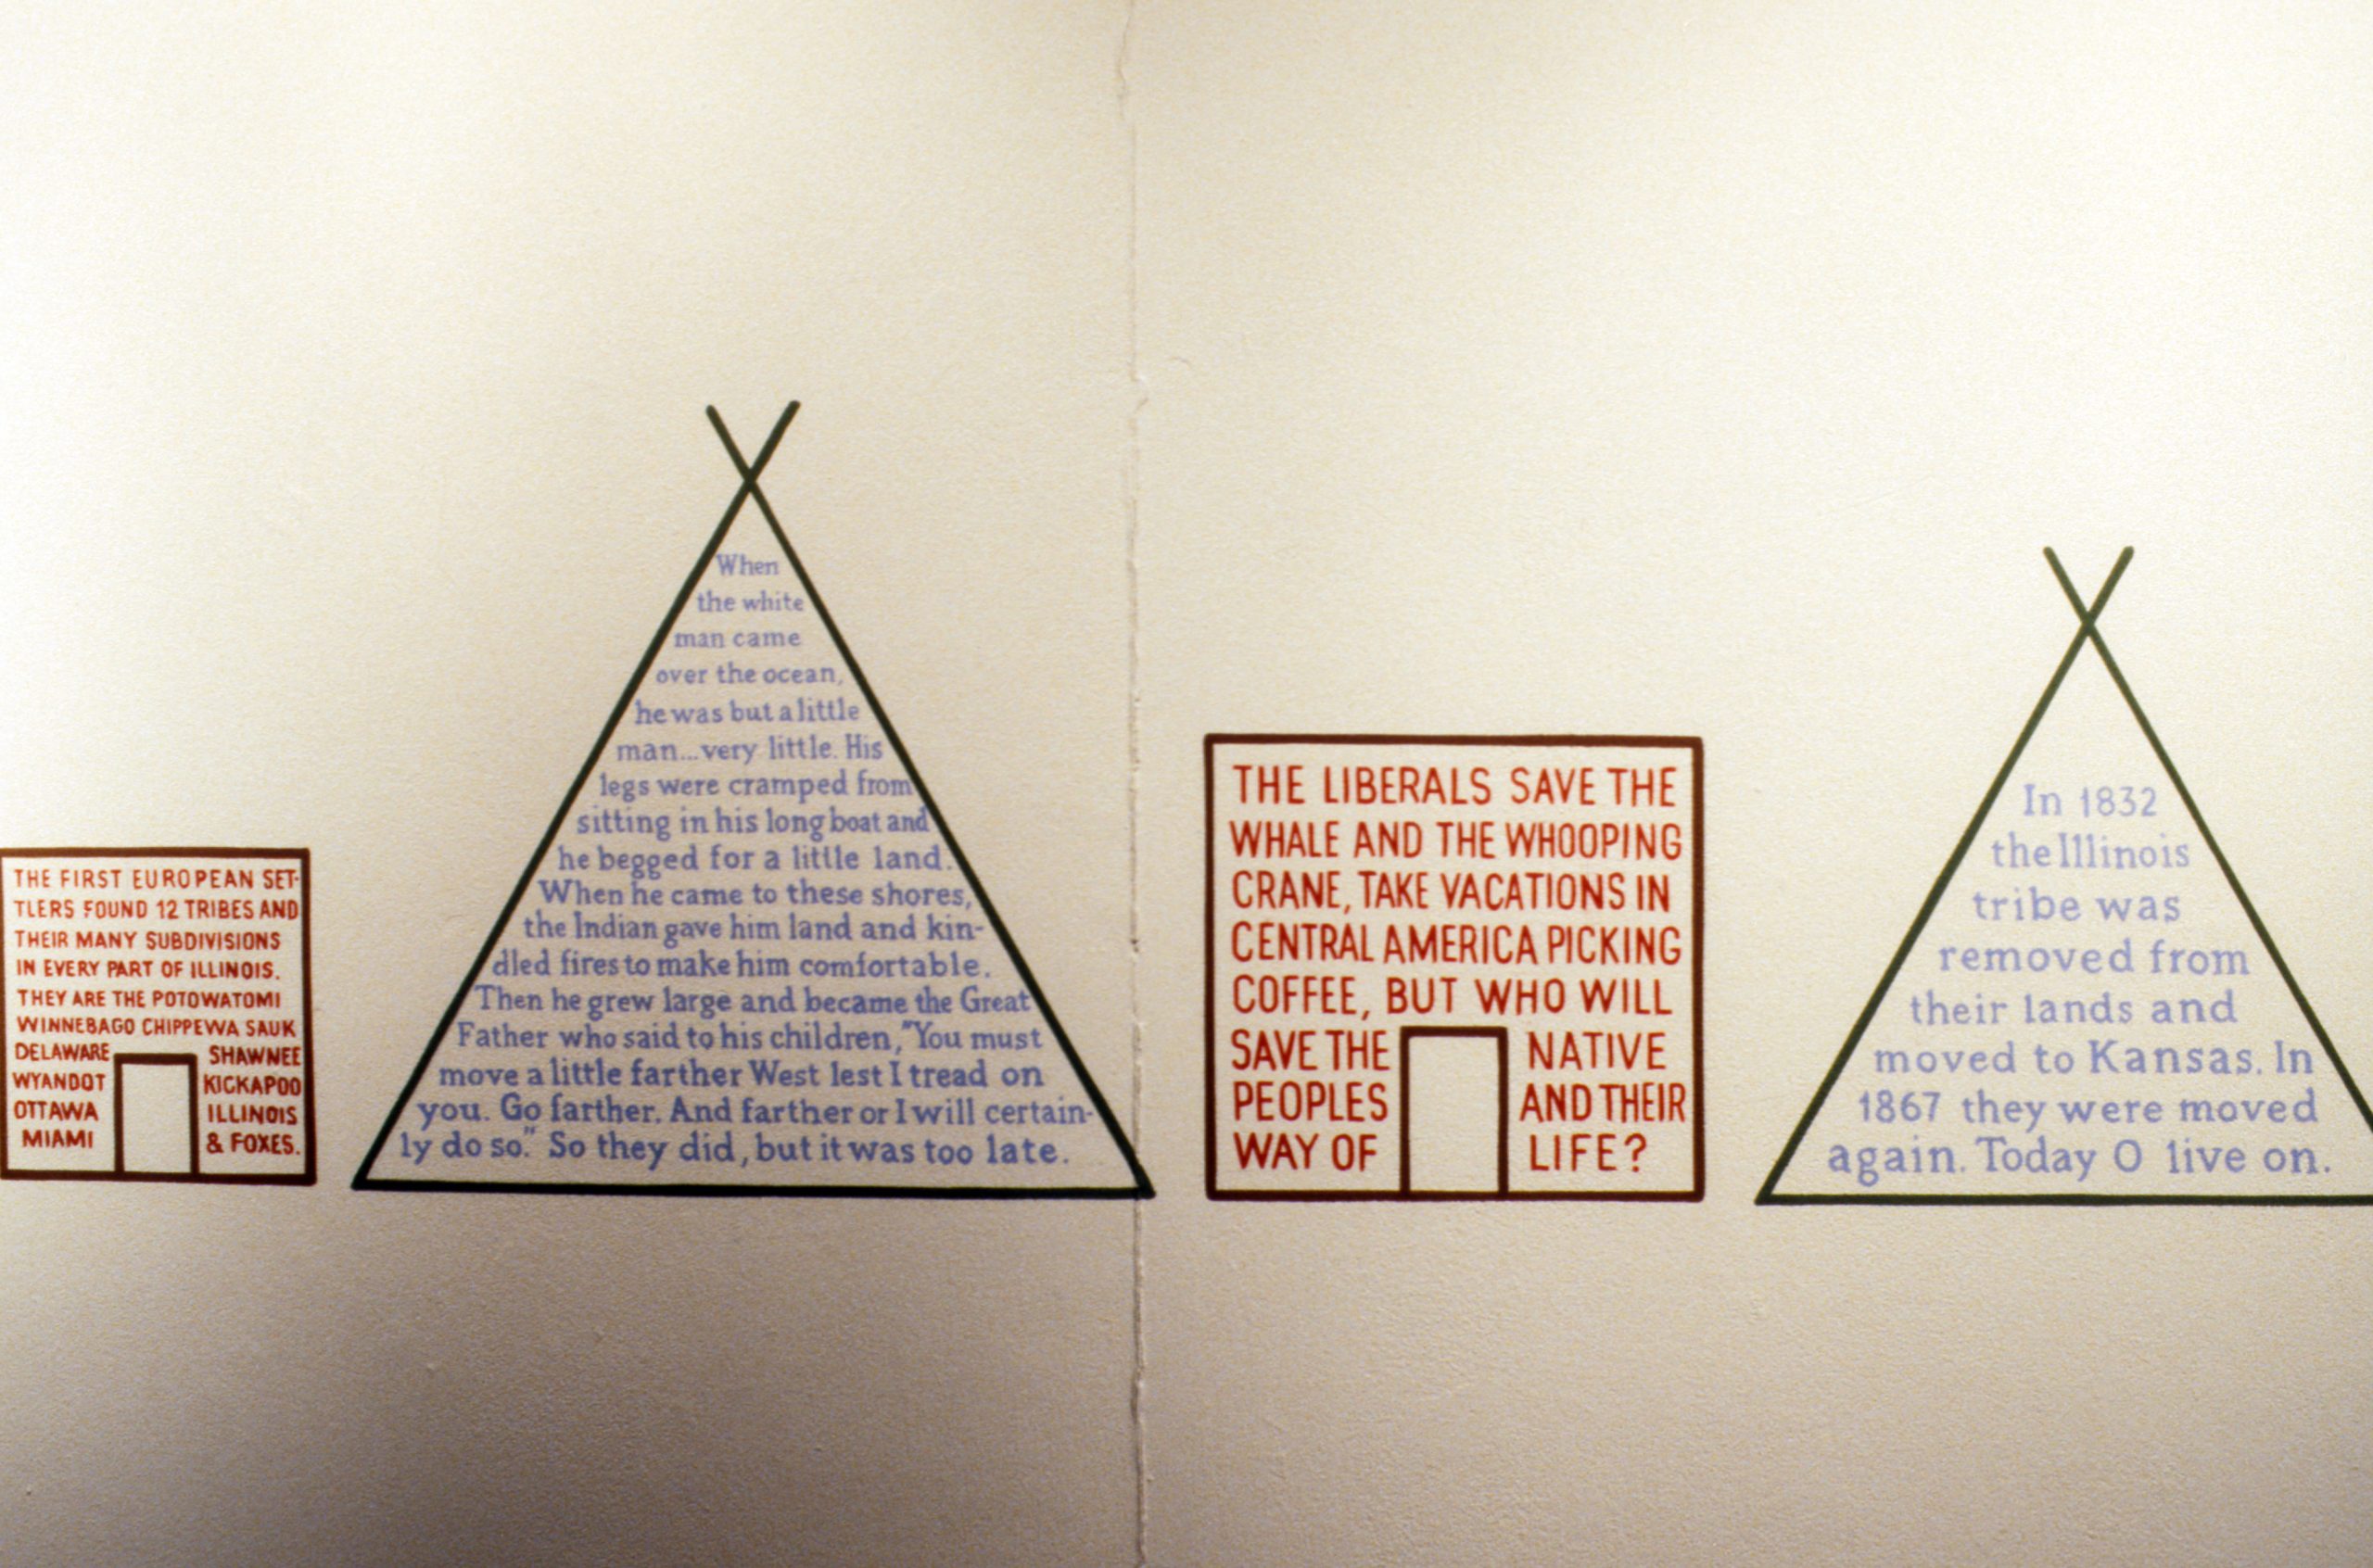 THE FIRST EUROPEAN SET-
TLERS FOUND 12 TRIBES AND
THEIR MANY SUBDIVISIONS
IN EVERY PART OF ILLINOIS.
THEY ARE THE POTOWATOMI
WINNEBAGO CHIPPEWA SAUK
DELAWARE SHAWNEE
WYANDOT KICKAPOO
OTTAWA ILLINOIS
MIAMI & FOXES.
When
the white
man came
over the ocean,
he was but a little
man...very little. His
legs were cramped from
sitting in his long boat and
he begged for a little land.
When he came to these shores,
the Indian gave him land and kin-
dled fires to make him comfortable.
Then he grew large and became the Great
Father who said to his children, "You must
move a little farther West lest I tread on
you. Go farther. And farther or I will certain-
ly do so." So they did, but it was too late.
THE LIBERALS SAVE THE
WHALE AND THE WHOOPING
CRANE, TAKE VACATIONS IN
CENTRAL AMERICA PICKING
COFFEE, BUT WHO WILL
SAVE THE NATIVE
PEOPLES AND THEIR
WAY OF LIFE?
In 1832
the Illinois
tribe was
removed from
their lands and
moved to Kansas. In
1867 they were moved
again. Today O live on.